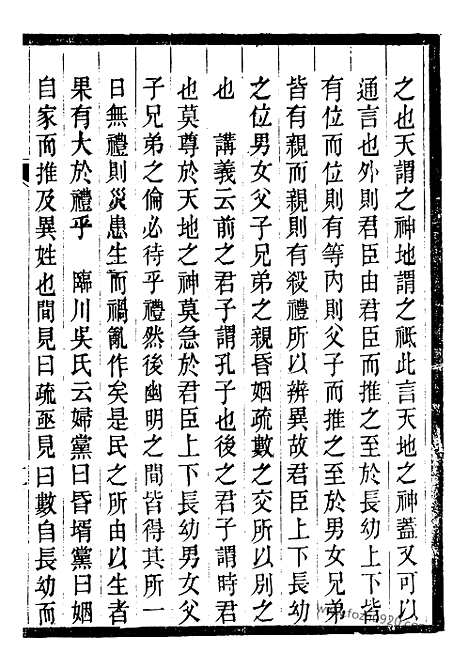 之也天謂之神地謂之祗此言天地之神蓋又可以
通言也外則君臣由君臣而推之至於長幼上下皆
有位而位則有等內則父子而推之至於男女兄弟
皆有親而親則有殺禮所以辨異故君臣上下長幼
之位男女父子兄弟之親昏姻疏數之交所以別之
也　講義云前之君子謂孔子也後之君子謂時君
也莫尊於天地之神莫急於君臣上下長幼男女父
子兄弟之倫必待乎禮然後幽明之間皆得其所一
日無禮則災患生而禍亂作矣是民之所由以生者
果有大於禮乎　臨川吳氏云婦黨曰昏壻黨曰姻
自家而推及異姓也間見曰疏亟見曰數自長幼而